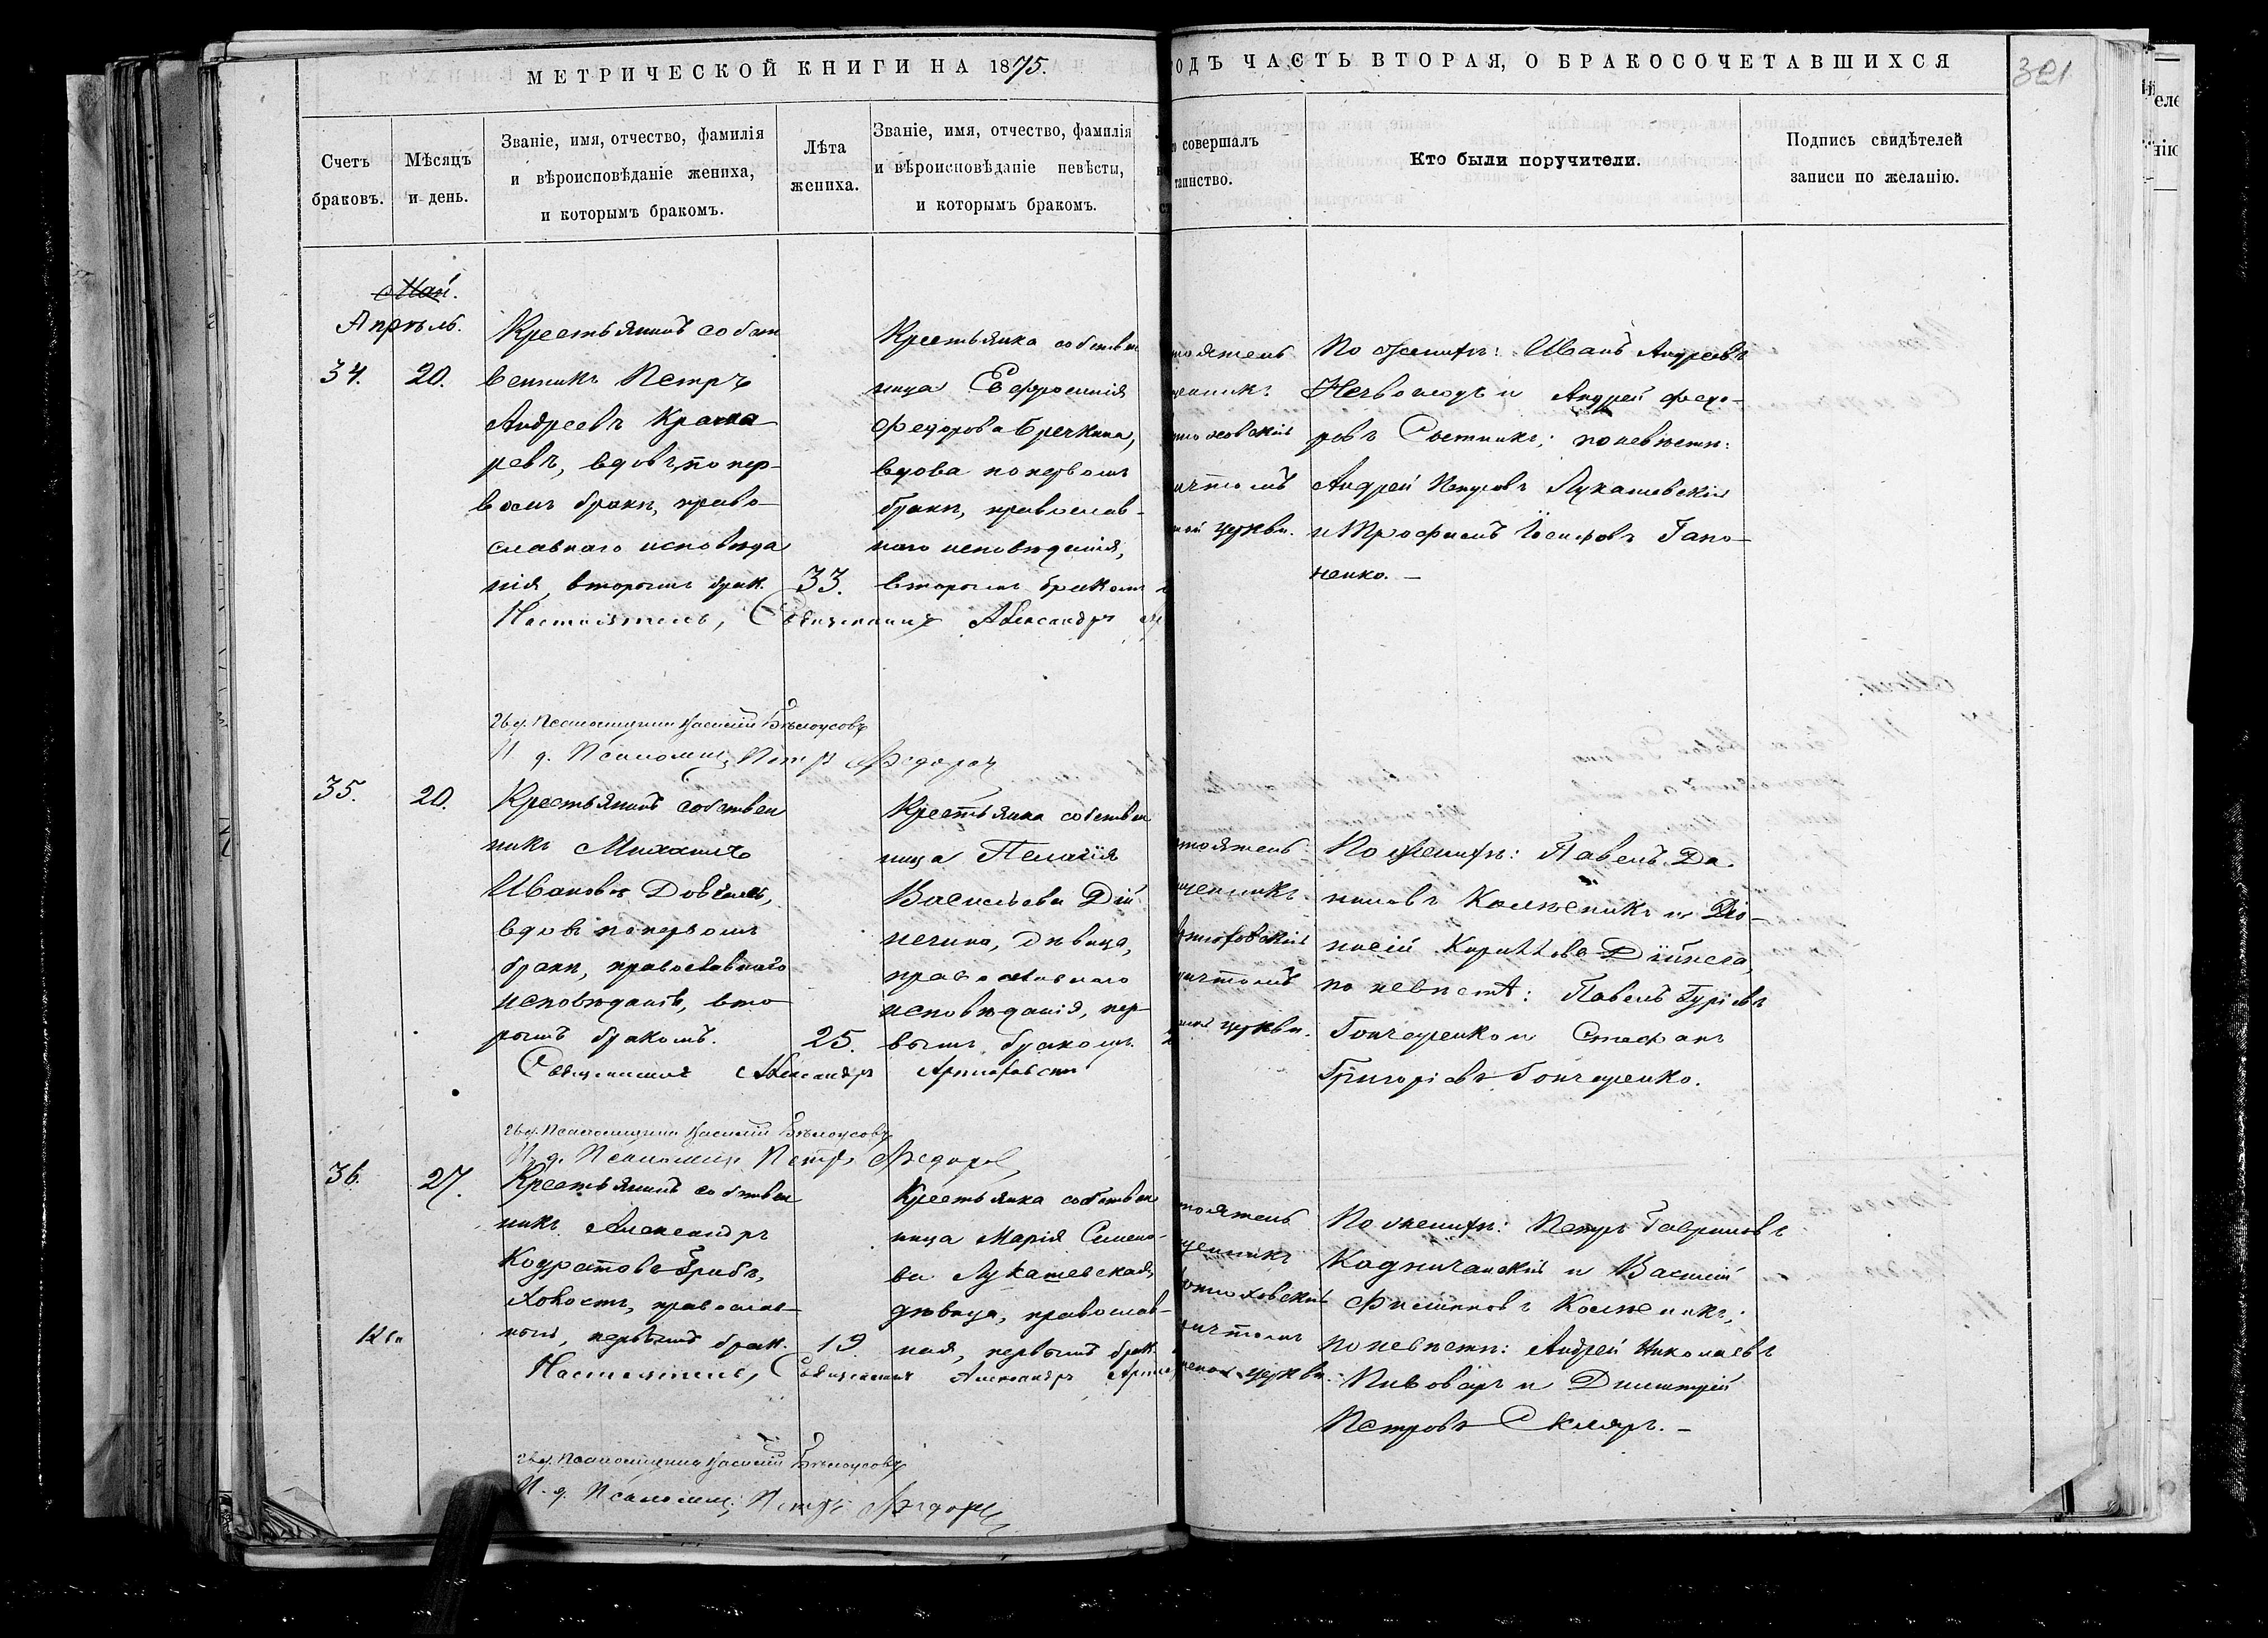 МЕТРИЧЕСКОЙ КНИГИ НА 1875.
ОДЪ ЧАСТЬ ВТОРАЯ, О БРАКОСОЧЕТАВШИХСЯ
321
Счетъ
браковъ.
Мѣсяцъ
и день.
Званіе, имя, отчество, фамилія
и вѣроисповѣданіе жениха,
и которымъ бракомъ.
Лѣта
жениха.
Званіе, имя, отчество, фамилія
и вѣроисповѣданіе невѣсты,
и которымъ бракомъ.
совершалъ
таинство.
Кто были поручители.
Подпись свидѣтелей
записи по желанію.
Май.
Апрѣль.
34.
20.
Крестьянинъ собст
венникъ Петръ
Андреевъ Крама
ревъ, вдовъ по пер-
вомъ бракѣ, право-
славнаго исповѣда
нія, вторымъ брак.
33.
Крестьянка собствен
ница Евфросинія
Федорова Гречкина,
вдова по первомъ
бракѣ, православ-
наго исповѣданія,
вторымъ бракомъ
Настоятель, Священникъ Александръ
стоятель
щенникъ
церкви.
По женихѣ: Иванъ Андреевъ
Нечволодъ и Андрей Федо-
ровъ Сытникъ; по невѣстѣ:
Андрей Петровъ Лукашевскій
и Трофимъ Іосифовъ Гапо-
ненко.-
Псаломщикъ Василій Бѣлоусовъ
И. д. Псаломщ. Петръ Федоров
35.
20.
Крестьянинъ собствен
никъ Михаилъ
Ивановъ Довгаль,
вдовъ по первомъ
бракѣ, православнаго
исповѣданія, вто
рымъ бракомъ.
25.
Крестьянка собствен
ница Пелагія
Васильева Дій
нечина, дѣвица,
православнаго
исповѣданія, пер-
вымъ бракомъ.
Священникъ Александръ Артюховскій
стоятель
щенникъ
ртюховскій
церкви.
По женихѣ: Павелъ Да-
ниловъ Калѣникъ и Діо-
нисій Кирилловъ Дійнега,
по невѣстѣ: Павелъ Гуріевъ
Гончаренко и Стефанъ
Григоріевъ Гончаренко.
Псаломщикъ Василій Бѣлоусовъ
И. д. Псаломщ. Петръ Федоров
36.
27.
Крестьянинъ собствен
никъ Александръ
Кодратовъ Грибъ,
холостъ, православ-
ный, первымъ брак.
19
Крестьянка собствен
ница Марія Симено-
ва Лукашевская,
дѣвица, православ-
ная, первымъ брак.
Настоятель, Священникъ Александръ Артюх
стоятель
щенникъ
ртюховскій
церкви.
По женихѣ: Петръ Гавриловъ
Кадничанскій и Василій
Филиповъ Калѣникъ;
по невѣстѣ: Андрей Николаевъ
Пивоваръ и Димитрій
Петровъ Скляръ.-
Псаломщикъ Василій Бѣлоусовъ
И. д. Псаломщ. Петръ Федоров